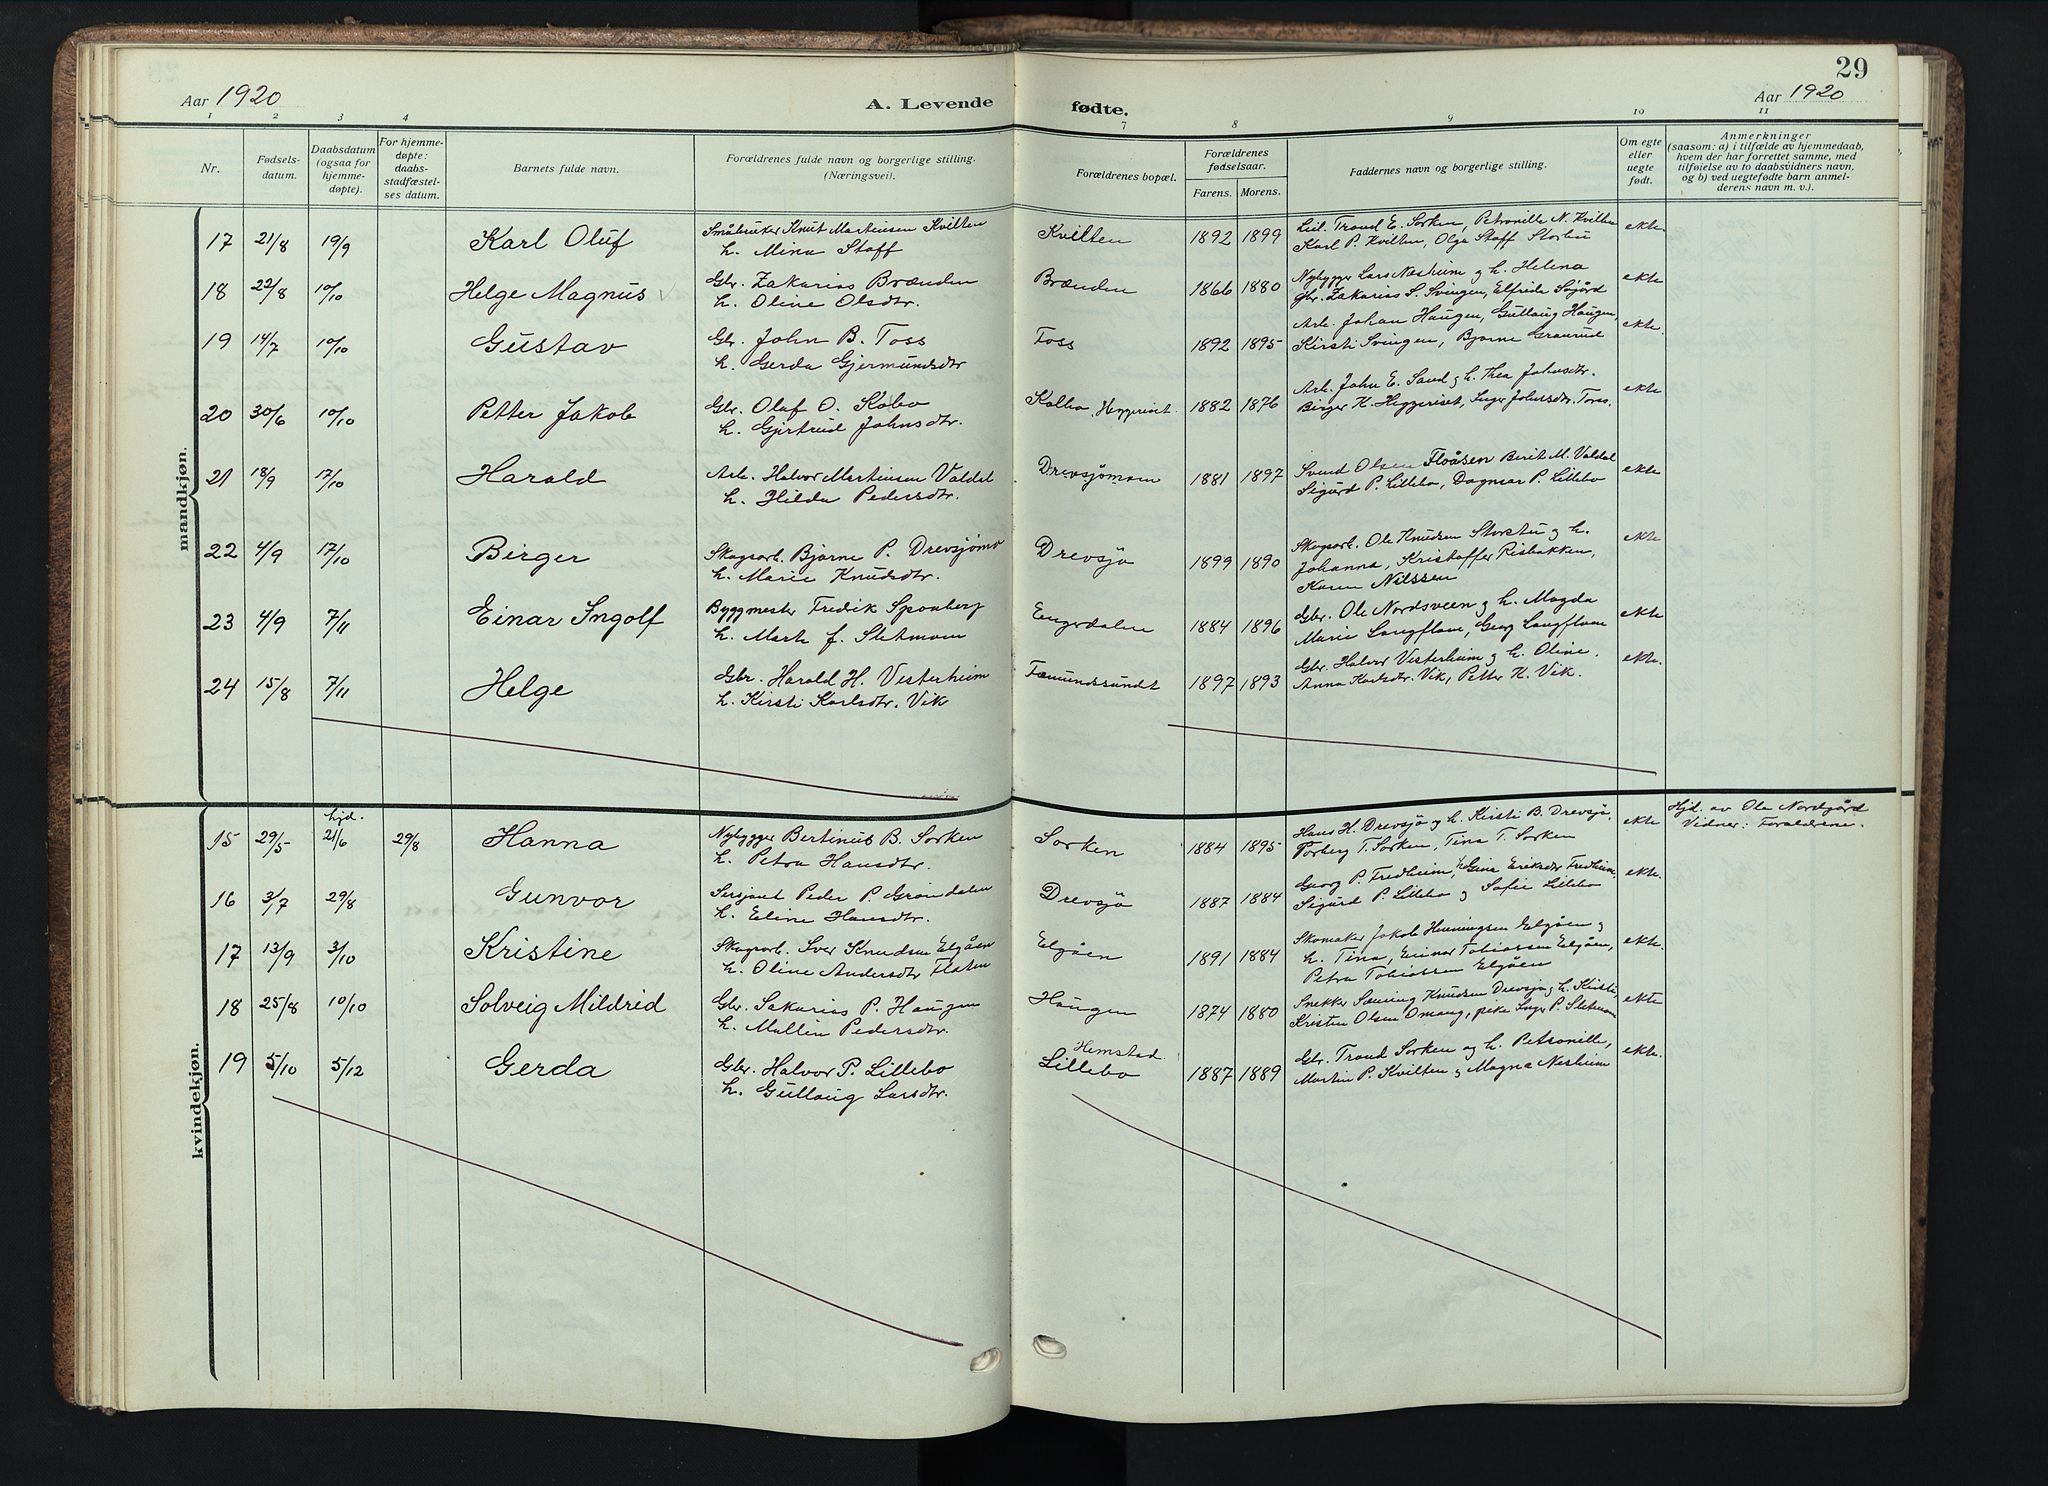 29
Aar 1920
A. Levende fødte.
Aar 1920
1 2 3 4 7 8 9 10 11
Nr.
Fødsels-
datum.
Daabsdatum
(ogsaa for
hjemme-
døpte).
For hjemme-
døpte:
daabs-
stadfæstel-
ses datum.
Barnets fulde navn.
Forældrenes fulde navn og borgerlige stilling.
(Næringsvei).
Forældrenes bopæl.
Forældrenes
fødselsaar.
Farens. Morens.
Faddernes navn og borgerlige stilling.
Om egte
eller
uegte
født.
Anmerkninger
(saasom: a) i tilfælde av hjemmedaab,
hvem der har forrettet samme, med
tilføielse av to daabsvidners navn,
og b) ved uegtefødte barn anmel-
derens navn m. v.).
mandkjøn.
17 21/8 19/9 Karl Oluf
Småbruker Knut Martinsen Kvilten
h. Mina Staff
Kvilten 1892 1899
Trond E. Sorken, Petronille N. Kvilten
Karl P. Kvilten, Olga Staff Storbu
ekte
18 22/8 10/10 Helge Magnus
Gbr. Zakarias Brænden
h. Oline Olsdtr.
Brænden 1866 1880
Nybygger Lars Nesheim og h. Helena
Gbr. Zakarias S. Svingen, Elfrida
ekte
19 14/7 10/10 Gustav
Gbr. John B. Foss
h. Gerda Gjermundsdtr
Foss 1892 1895
Arb. Johan Haugen, Gullaug Haugen,
Kirsti Svingen, Bjarne Granrud
ekte.
20 30/6 10/10 Petter Jakob
Gbr. Olaf O. Kolbo
h. Gjertrud Johnsdtr.
Kolbo, Heggeriset. 1882 1876
Arb. John E. Sand og h. Thea Johnsdtr.
Birger H. Heggeriset, Inger Johnsdtr.
ekte
21 18/9 17/10 Harald
Arb. Halvor Martinsen Valdal
h. Hilda Pedersdtr.
Drevsjømoen 1881 1897
Svend Olsen Floåsen Berit M. Valdal
Sigurd P. Lillebo, Dagmar P. Lillebo
ekte
22 4/9 17/10 Birger
Skogsarb. Bjarne P. Drevsjømo
h. Marie Knudsdtr.
Drevsjø 1899 1890
Skogsarb. Ole Knudsen Storstu og h.
Johanna, Kristoffer Risbakken,
Karen Nilssen
ekte
23 4/9 7/11 Einar Ingolf
Byggmester Fredrik Sponberg
h. Marth f. Sletmoen
Engerdalen 1884 1896
Gbr. Ole Nordsveen og h. Magda
Marie Langfloen, Georg Langfloen
ekte
24 15/8 7/11 Helge
Gbr. Harald H. Vesterheim
h. Kirsti Karlsdtr. Vik
Fæmundssundet 1897 1893
Gbr. Halvor Vesterheim og h. Oline.
Anna Karlsdtr. Vik, Petter K. Vik.
ekte.
kvindekjøn.
15 29/5 hjd. 21/6 29/8 Hanna
Nybygger Bertinus B. Sorken
h. Petra Hansdtr.
Sorken 1884 1895
Hans H. Drevsjø og h. Kirsti B. Drevsjø,
Torberg T. Sorken, Tina T. Sorken
ekte
Hjd. av Ole Nordgård
Vidner: Forældrene.
16 3/7 29/8 Gunvor
Sersjant Peder P. Grøndalen
h. Eline Hansdtr.
Drevsjø 1887 1884
Georg P. Fredheim, h. Gina Eriksdtr Fredheim,
Sigurd P. Lillebo og Sofie Lillebo
ekte.
17 13/9 3/10 Kristine
Skogsarb. Iver Knudsen Elgåen
h. Oline Andersdtr Flaten
Elgåen 1891 1884
Skomaker Jakob Henningsen Elgåen og
h. Tina, Einar Tobiassen Elgåen,
Petra Tobiassen Elgåen
ekte.
18 25/8 10/10 Solveig Mildrid
Gbr. Sakarias P. Haugen
h. Mallin Pedersdtr.
Haugen 1874 1880
Snekker Sæming Knudsen Drevsjø og h. Kirsti,
Kristen Olsen Omang, pike Inger P. Sletmoen
ekte
19 5/10 5/12 Gerda
Gbr. Halvor P. Lillebo
h. Gullaug Larsdtr.
Hemstad
Lillebo 1887 1889
Gbr. Trond Sorken og h. Petronille,
Martin P. Kvilten og Magna Nesheim
ekte.